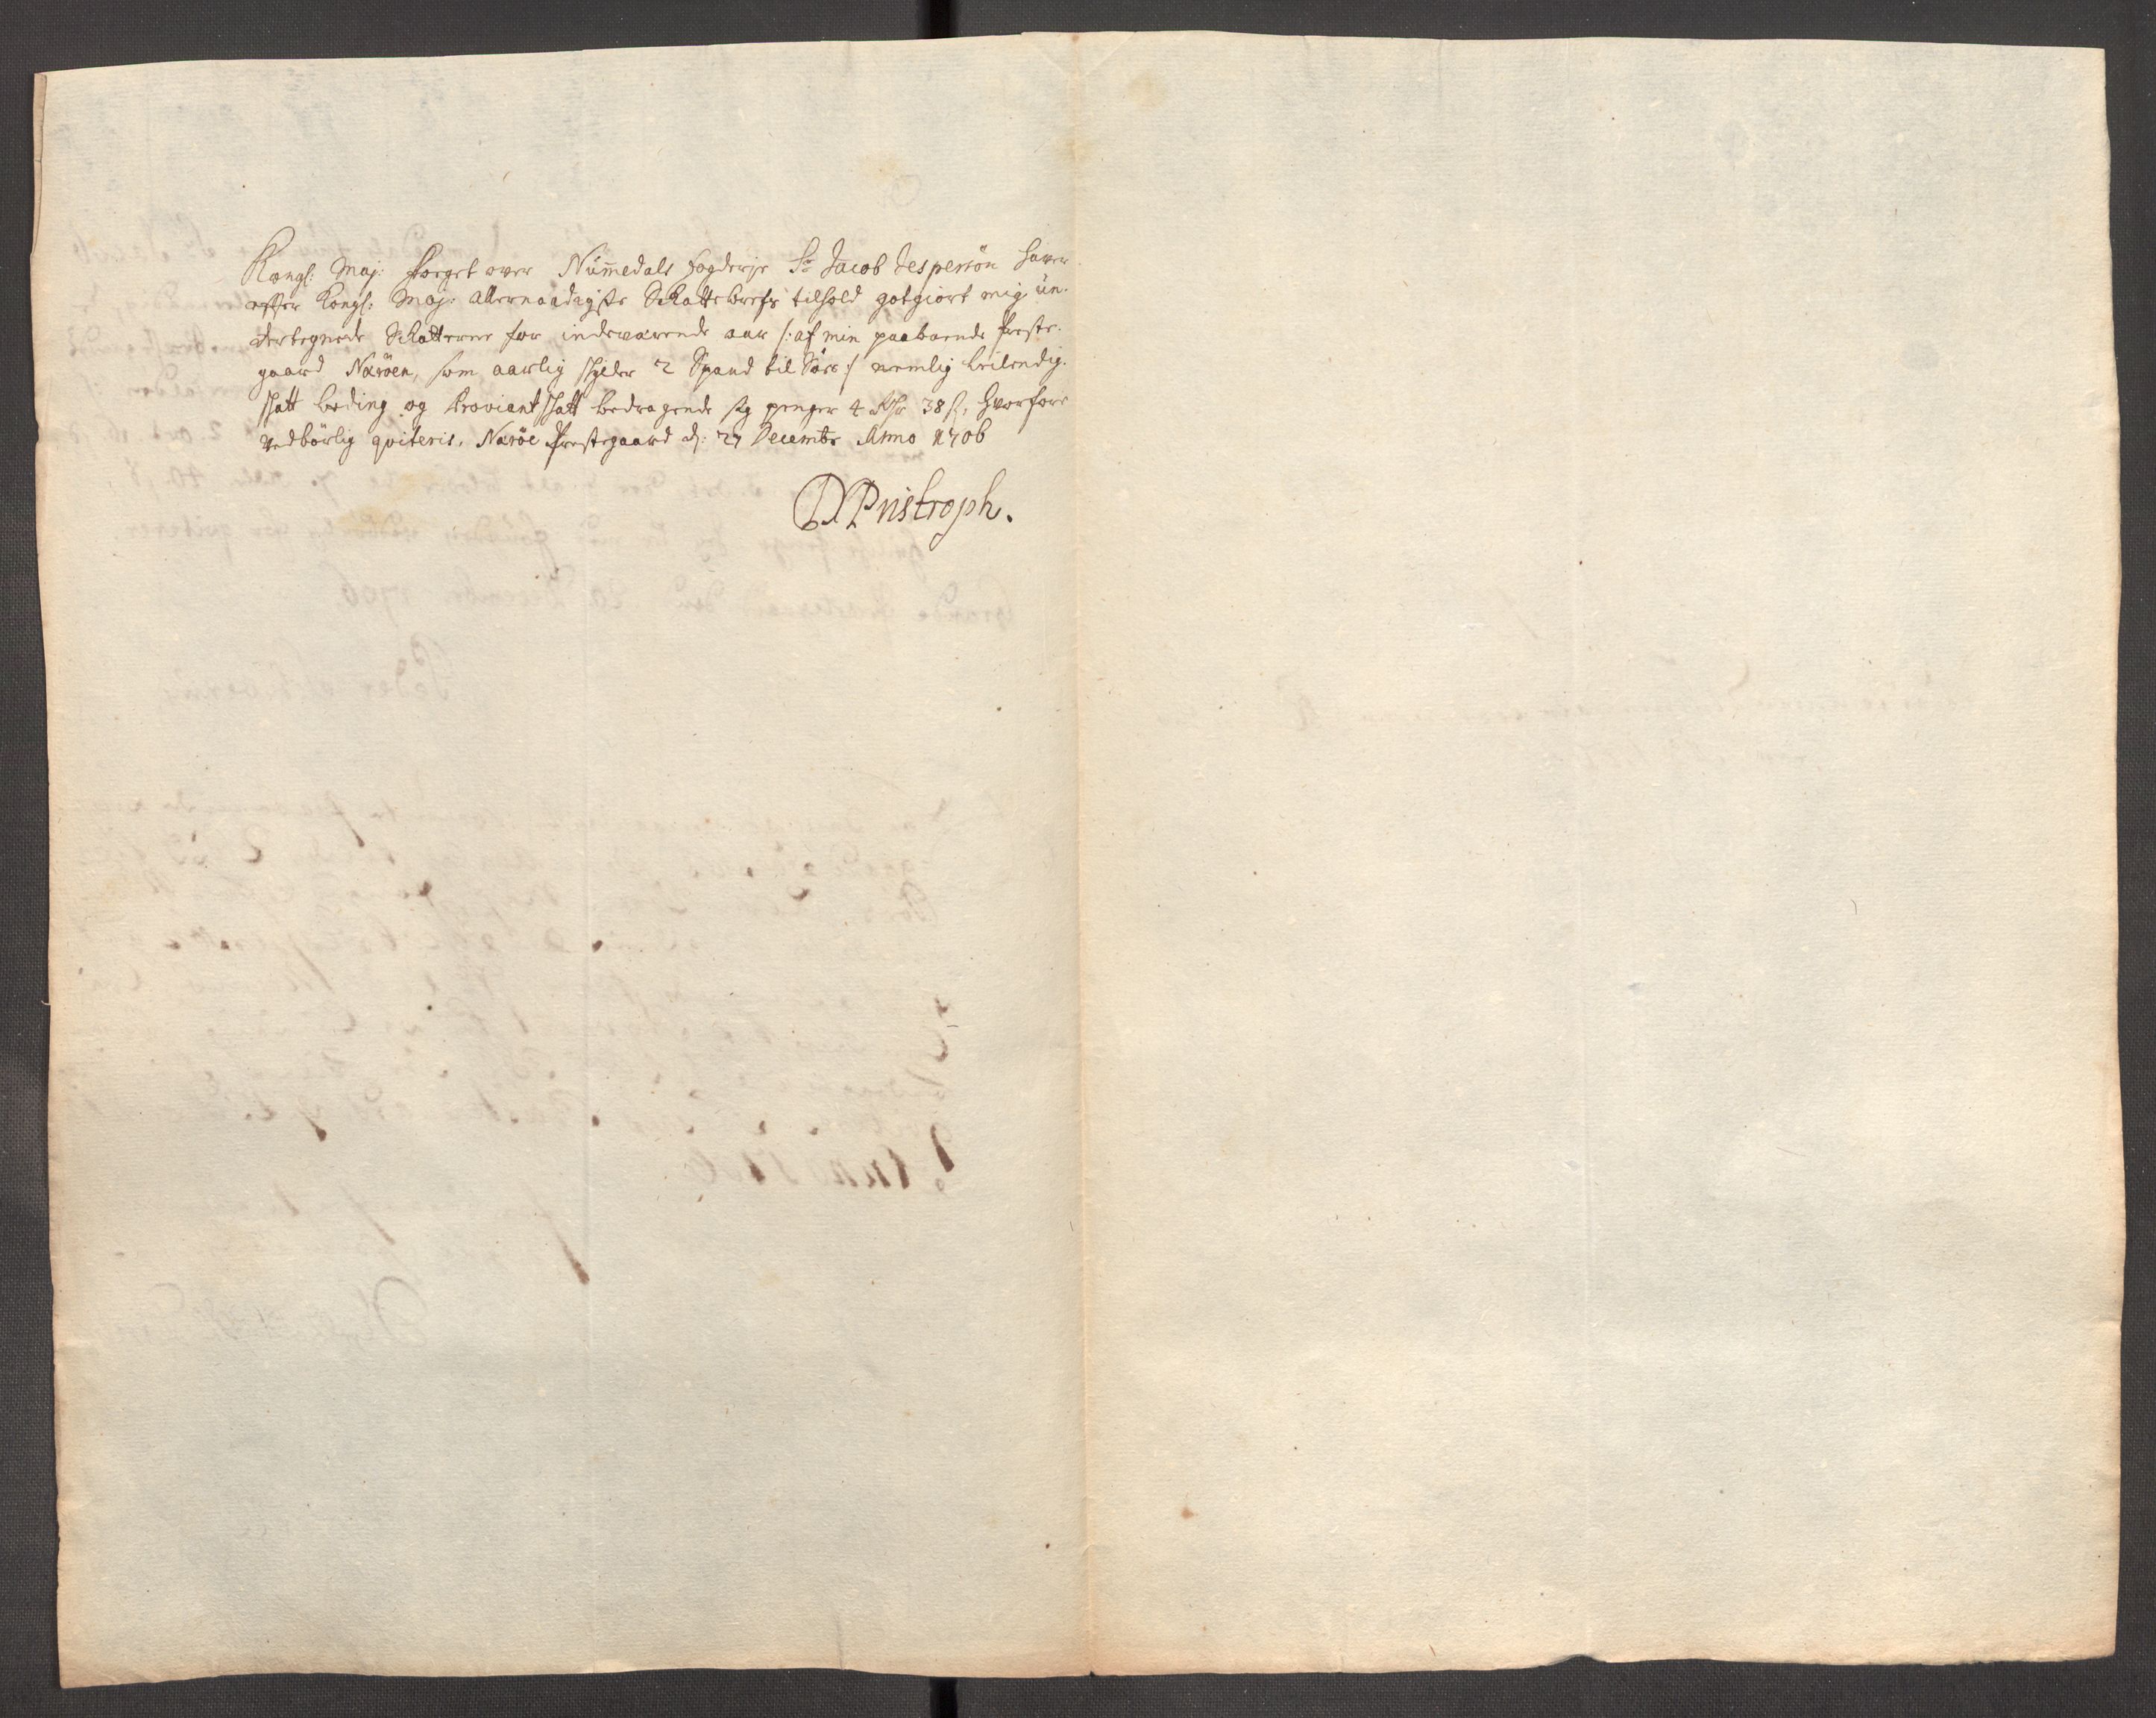 Kongl: Maj: Foeget over Nummedals Fogderje Sr Jacob Jespersön hawer
efter Kongl: Maj: allernaadigste Skattebrefs tilhold gotgiort mig un-
dertegnede Skatterne for indewærende aar /: af min paaboende Preste-
gaard Næröen, som aarlig skylder 2 Spand til Söes :/ nemlig leilendig-
skatt leding og Proviantskatt bedragende sig penger 4 Rdr 38 s, hvorfore
vedbörlig qviteris, Næröe Prestegaard d: 27 Decembr Anno 1706
DPristroph.